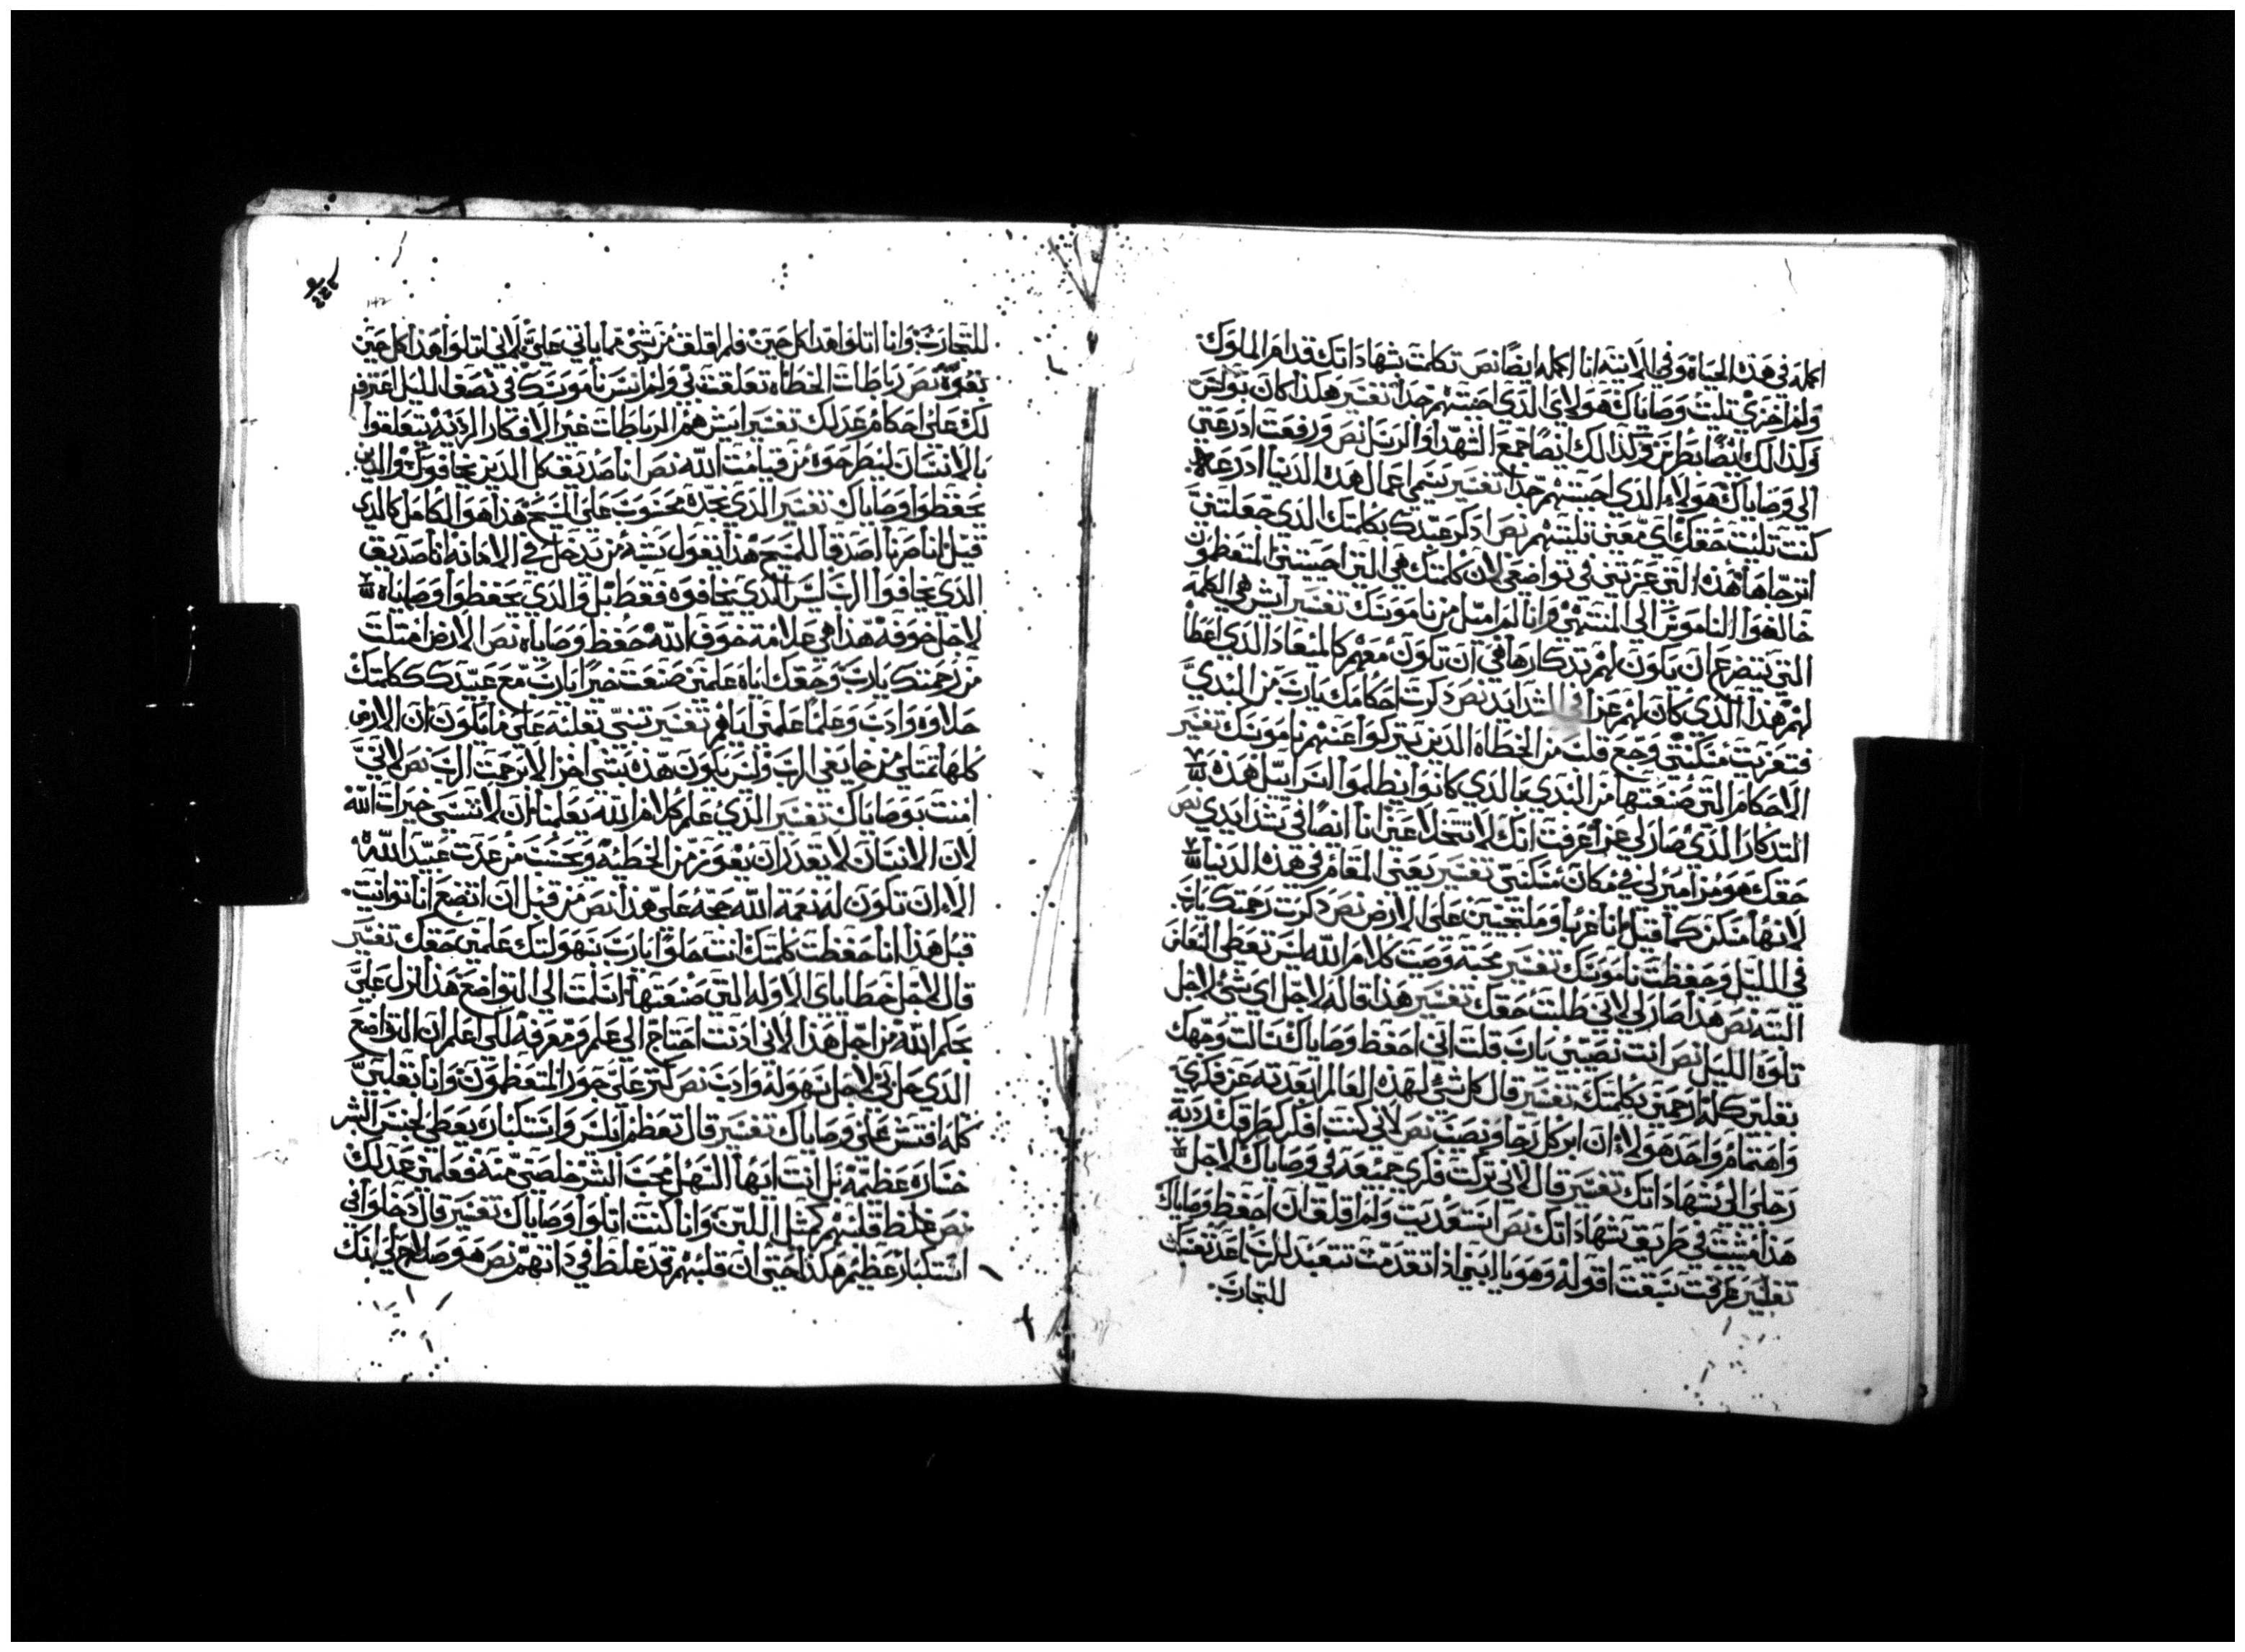 اكمله في هذه الحياة وفي الاتية انا اكمله ايضا نص تكلمت بشهاداتك قدام الملوك
ولم اخزي تليت وصاياك هولاي الذي احببتهم جدا تفسير هكذا كان بولس
وكذلك ايضا بطرس وكذلك ايضا جمع الشهدا والرسل نص ورفعت ادرعتي
الى وصاياك هولاء الذي احببتهم جدا تفسير يسمي اعمال هذه الدنيا ادرعه
كنت تليت حقك اي معني تليتهم نص ادكر عبدك بكلمتك الذي جعلتني
اترجاها هذه التي عزتني في تواضعي لان كلمتك هي التي احييتني المتعظمون
خالفوا الناموس الى المنتهي وانا لم اميل من ناموسك تفسير ايش هي الكلمه
التي يتضرع ان يكون لهم تدكارها في ان تكون معهم كالميعاد الذي اعطا
لهم هذا الذي كان لهم عزا في الشدايد نص دكرت احكامك يارب من البدي
فتعزيت مسكتني وجع قلب من الخطاه الذين يتركوا عنهم ناموسك تفسير
الاحكام التي صنعتها من البدي بالذي كانوا يظلموا اسراييل هذه
التدكار الذي صار لي عزا عرفت انك لا تتخلا عني انا ايضا في شدايدي نص
حقك هو مزامير لي في مكان مسكنتي تفسير يعني المقام في هذه الدنيا
لانها مسكن كما قيل انا غربا وملتجيين على الارض نص دكرت رحمتك يارب
في الليل وحفظت ناموسك تفسير محبة وصيت كلام الله ليس تعطي النعاس
البته نص هذا صار لي لاني طلبت حقك تفسير هذا قاله لاجل اي شئ لاجل
تلاوة الليل نص انت نصيبي يارب قلت اني احفظ وصاياك سالت وجهك
بقلبي كله ارحمني بكلمتك تفسير قال كل شئ لهذه العالم ابعدته عن فكري
واهتمام واحد هولاء ان ابر كل رجا ونصيب نص لاني كنت افكر بطرقك رديت
رجلي الى شهاداتك تفسير قال لاني تركت فكري جميعه في وصاياك لاجل
هذا مشيت في طريق شهاداتك نص استعديت ولم اقلق ان احفظ وصاياك
تفسير عرفت سبقت اقوله وهو يا ابني اذا تقدمت تتعبد للرب اعد نفسك
للتجارب
للتجارب وانا اتلوا هذا كل حين فلم اقلق من شي مما ياتي علي لاني اتلوا هذا كل حين
بقوة نص رباطات الخطاه تعلقت بي ولم انس ناموسك في نصف الليل اعترف
لك على احكام عدلك تفسير ايش هم الرباطات غير الافكار الرديه يتعلقوا
بالانسان ليطرحوه من قيامت الله نص انا صديق كل الذين يخافوك والذين
يحفظوا وصاياك تفسير الذي نجده محسوب على المسيح هذا هو الكامل كالذي
قيل انا صرنا اصدقا للمسيح هذا يقول بشه من يدخل في الامانه انا صديق
الذي يخافوا الرب ليس الذي يخافوه فقط بل والذي يحفظوا وصاياه
لاجل خوفه هذا هي علامة خوف الله حفظ وصاياه نص الارض امتلت
من رحمتك يارب وحقك اياه علمني صنعت خيرا يارب مع عبدك ككلمتك
حلاوه وادب وعلما علمني اياهم تفسير
كلها تمتلي من خايفي الرب وليس يكون هذه بشي اخر الا برحمت الرب نص لاني
امنت بوصاياك تفسير الذي علم كلام الله يعلمنا ان لا ننسى خيرات الله
لان الانسان لا يقدر ان يفوز من الخطيه ويحسب من عدت عبيد الله
الا ان تكون له نعمة الله حجه على هذا نص من قبل ان اتضع انا توانيت
قبل هذا انا حفظت كلمتك انت حلو يارب بسهولتك علمني حقك تفسير
قال لاجل خطاياي الاوله التي صنعتها انسلمت الى التواضع هذا نزل علي
بحكم الله من اجل هذا لاني اذنبت احتاج الى علم ومعرفه لكي اعلم ان التواضع
الذي حل بي لاجل سهوله وادب نص كتر علي جور المتعظمون وانا بقلبي
كله افتش على وصاياك تفسير قال تعظم ابليس واستكباره يعطي لجنس البشر
خساره عظيمه بل انت ايها السهل محب البشر خلصني منه فعلمني عدلك
نص غلظ قلبهم كمثل اللبن وانا كنت اتلوا وصاياك تفسير قال دخلوا في
استكبار عظيم هكذا حتى ان قلبهم قد غلظ في داتهم نص هو صلاح لي انك